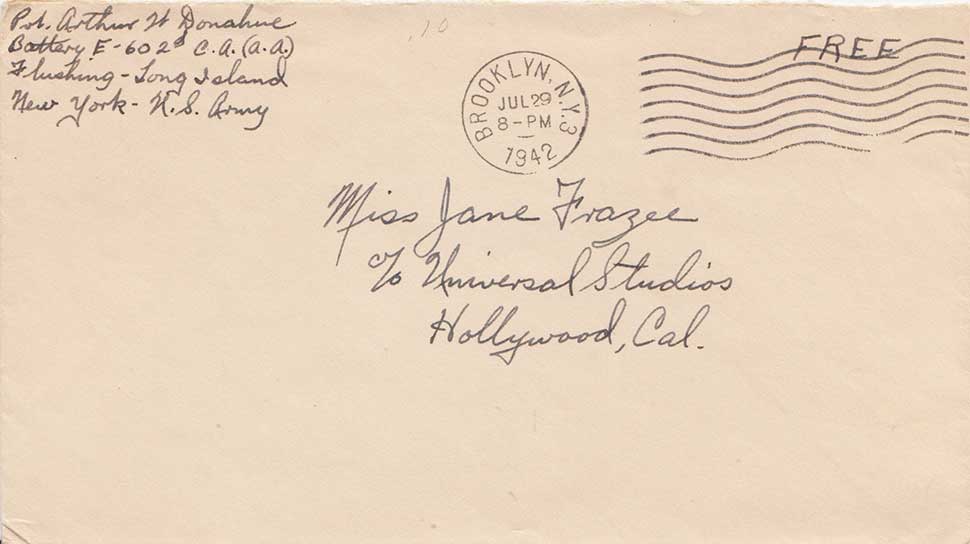 Pvt. Arthur W Donahue
Battery E-602d C.A. (A.A.)
Flushing - Long Island
New York - U.S. Army
10
BROOKLYN, N.Y. 3
JUL 29
8-PM
1942
FREE
Miss Jane Frazee
c/o Universal Studios
Hollywood, Cal.